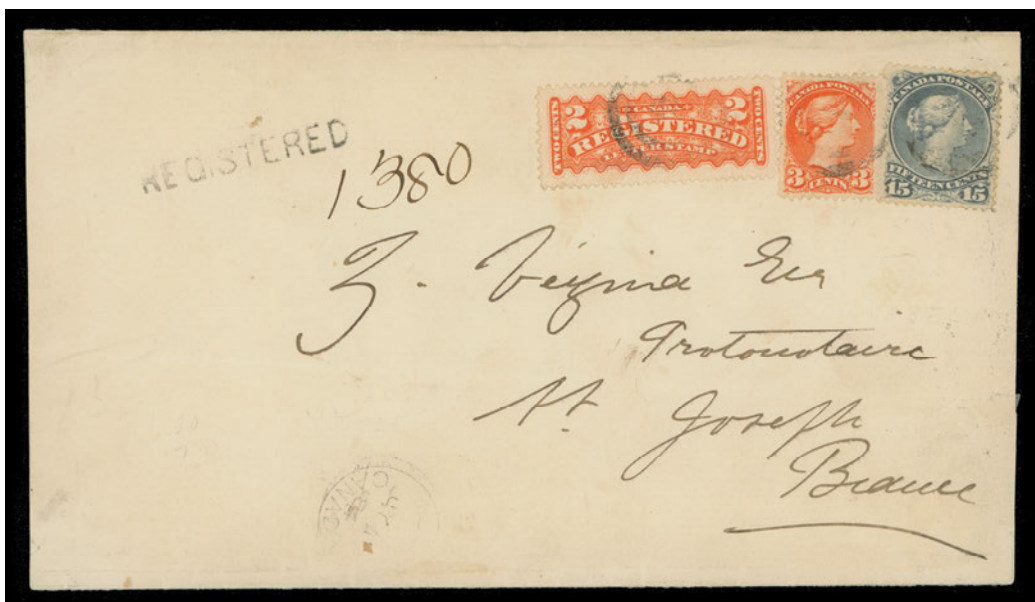 REGISTERED
1380
2 CANADA 2
TWO CENTS REGISTERED TWO CENTS
LETTER STAMP
CANADA POSTAGE
3 CENTS 3
CANADA POSTAGE
FIFTEEN CENTS
15 15
Z. Vézina Esq
Protonotaire
St. Joseph
Beauce
CANAD